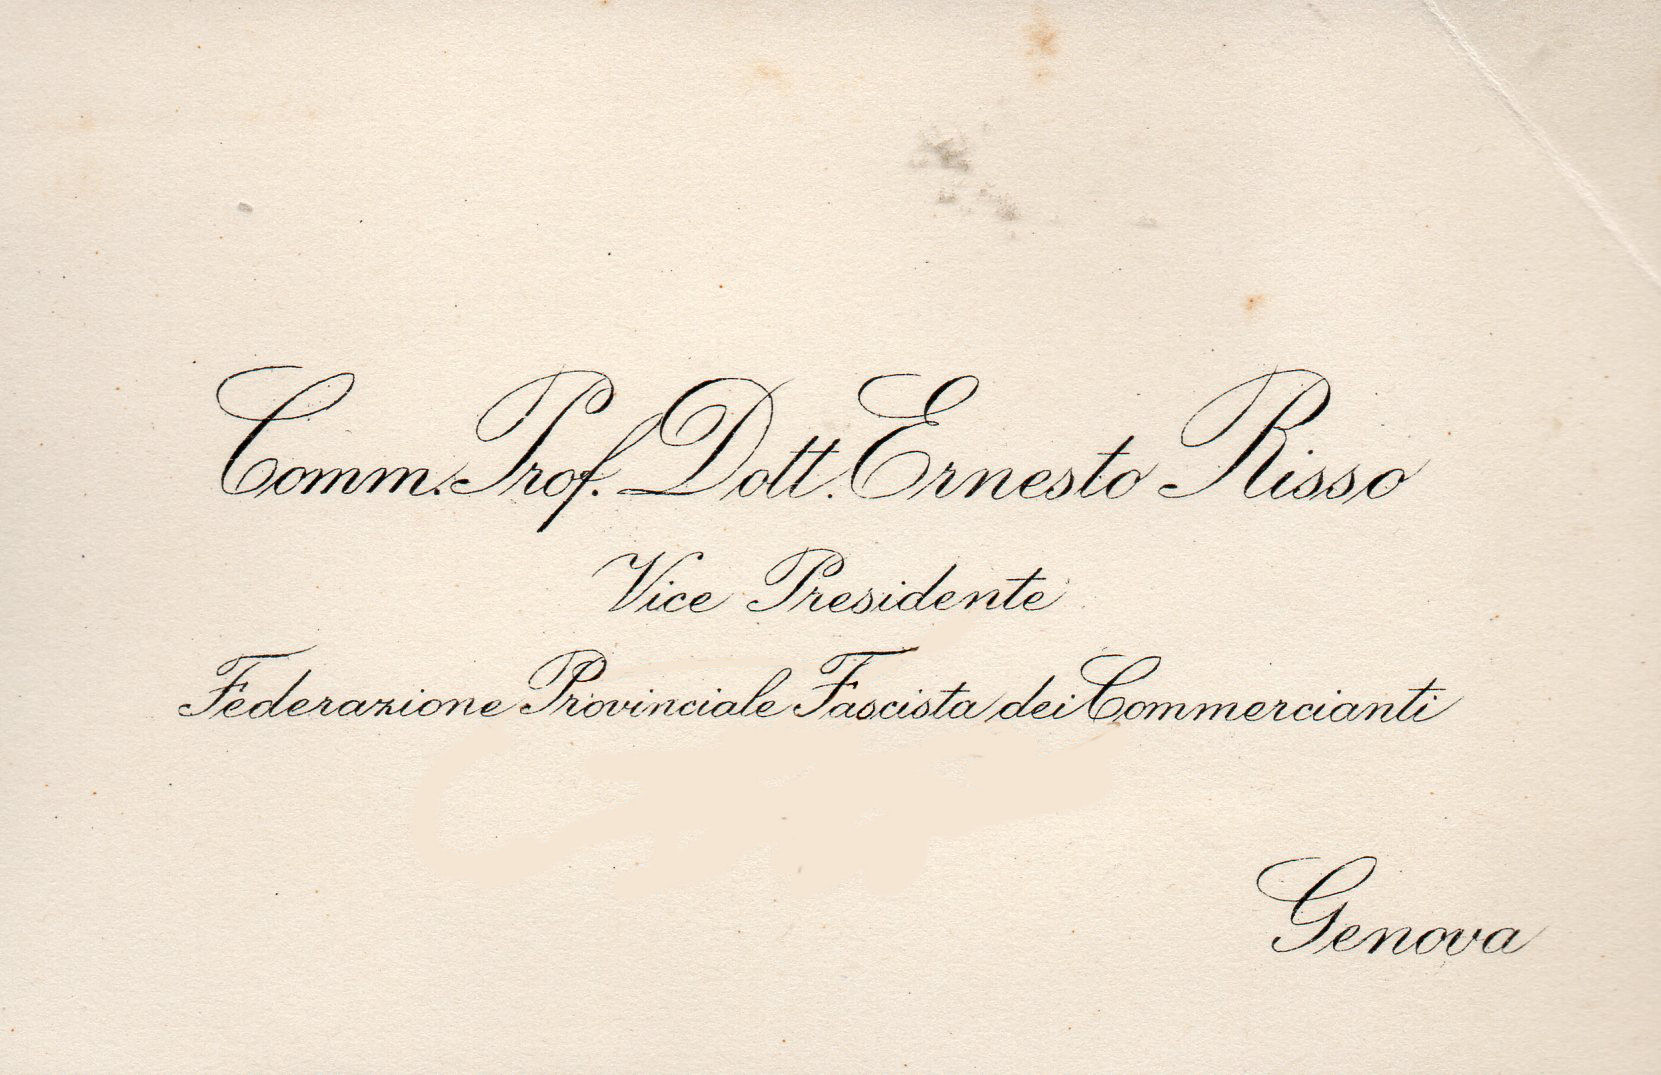 Comm. Prof. Dott. Ernesto Risso
Vice Presidente
Federazione Provinciale Fascista dei Commercianti
Genova